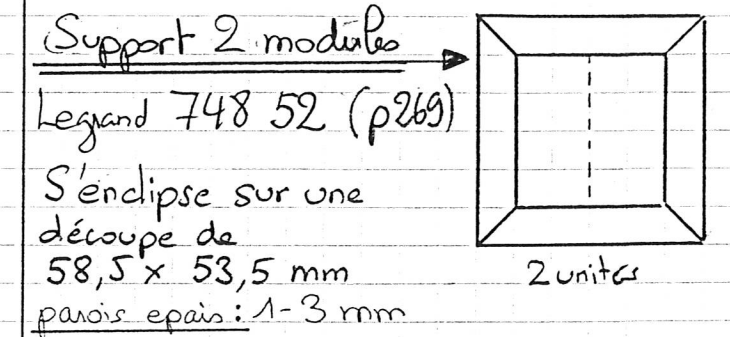 Support 2 modules
Legrand 748 52 (p269)
S'enclipse sur une
découpe de
58,5 x 53,5 mm
parois epais : 1-3 mm
2 unités